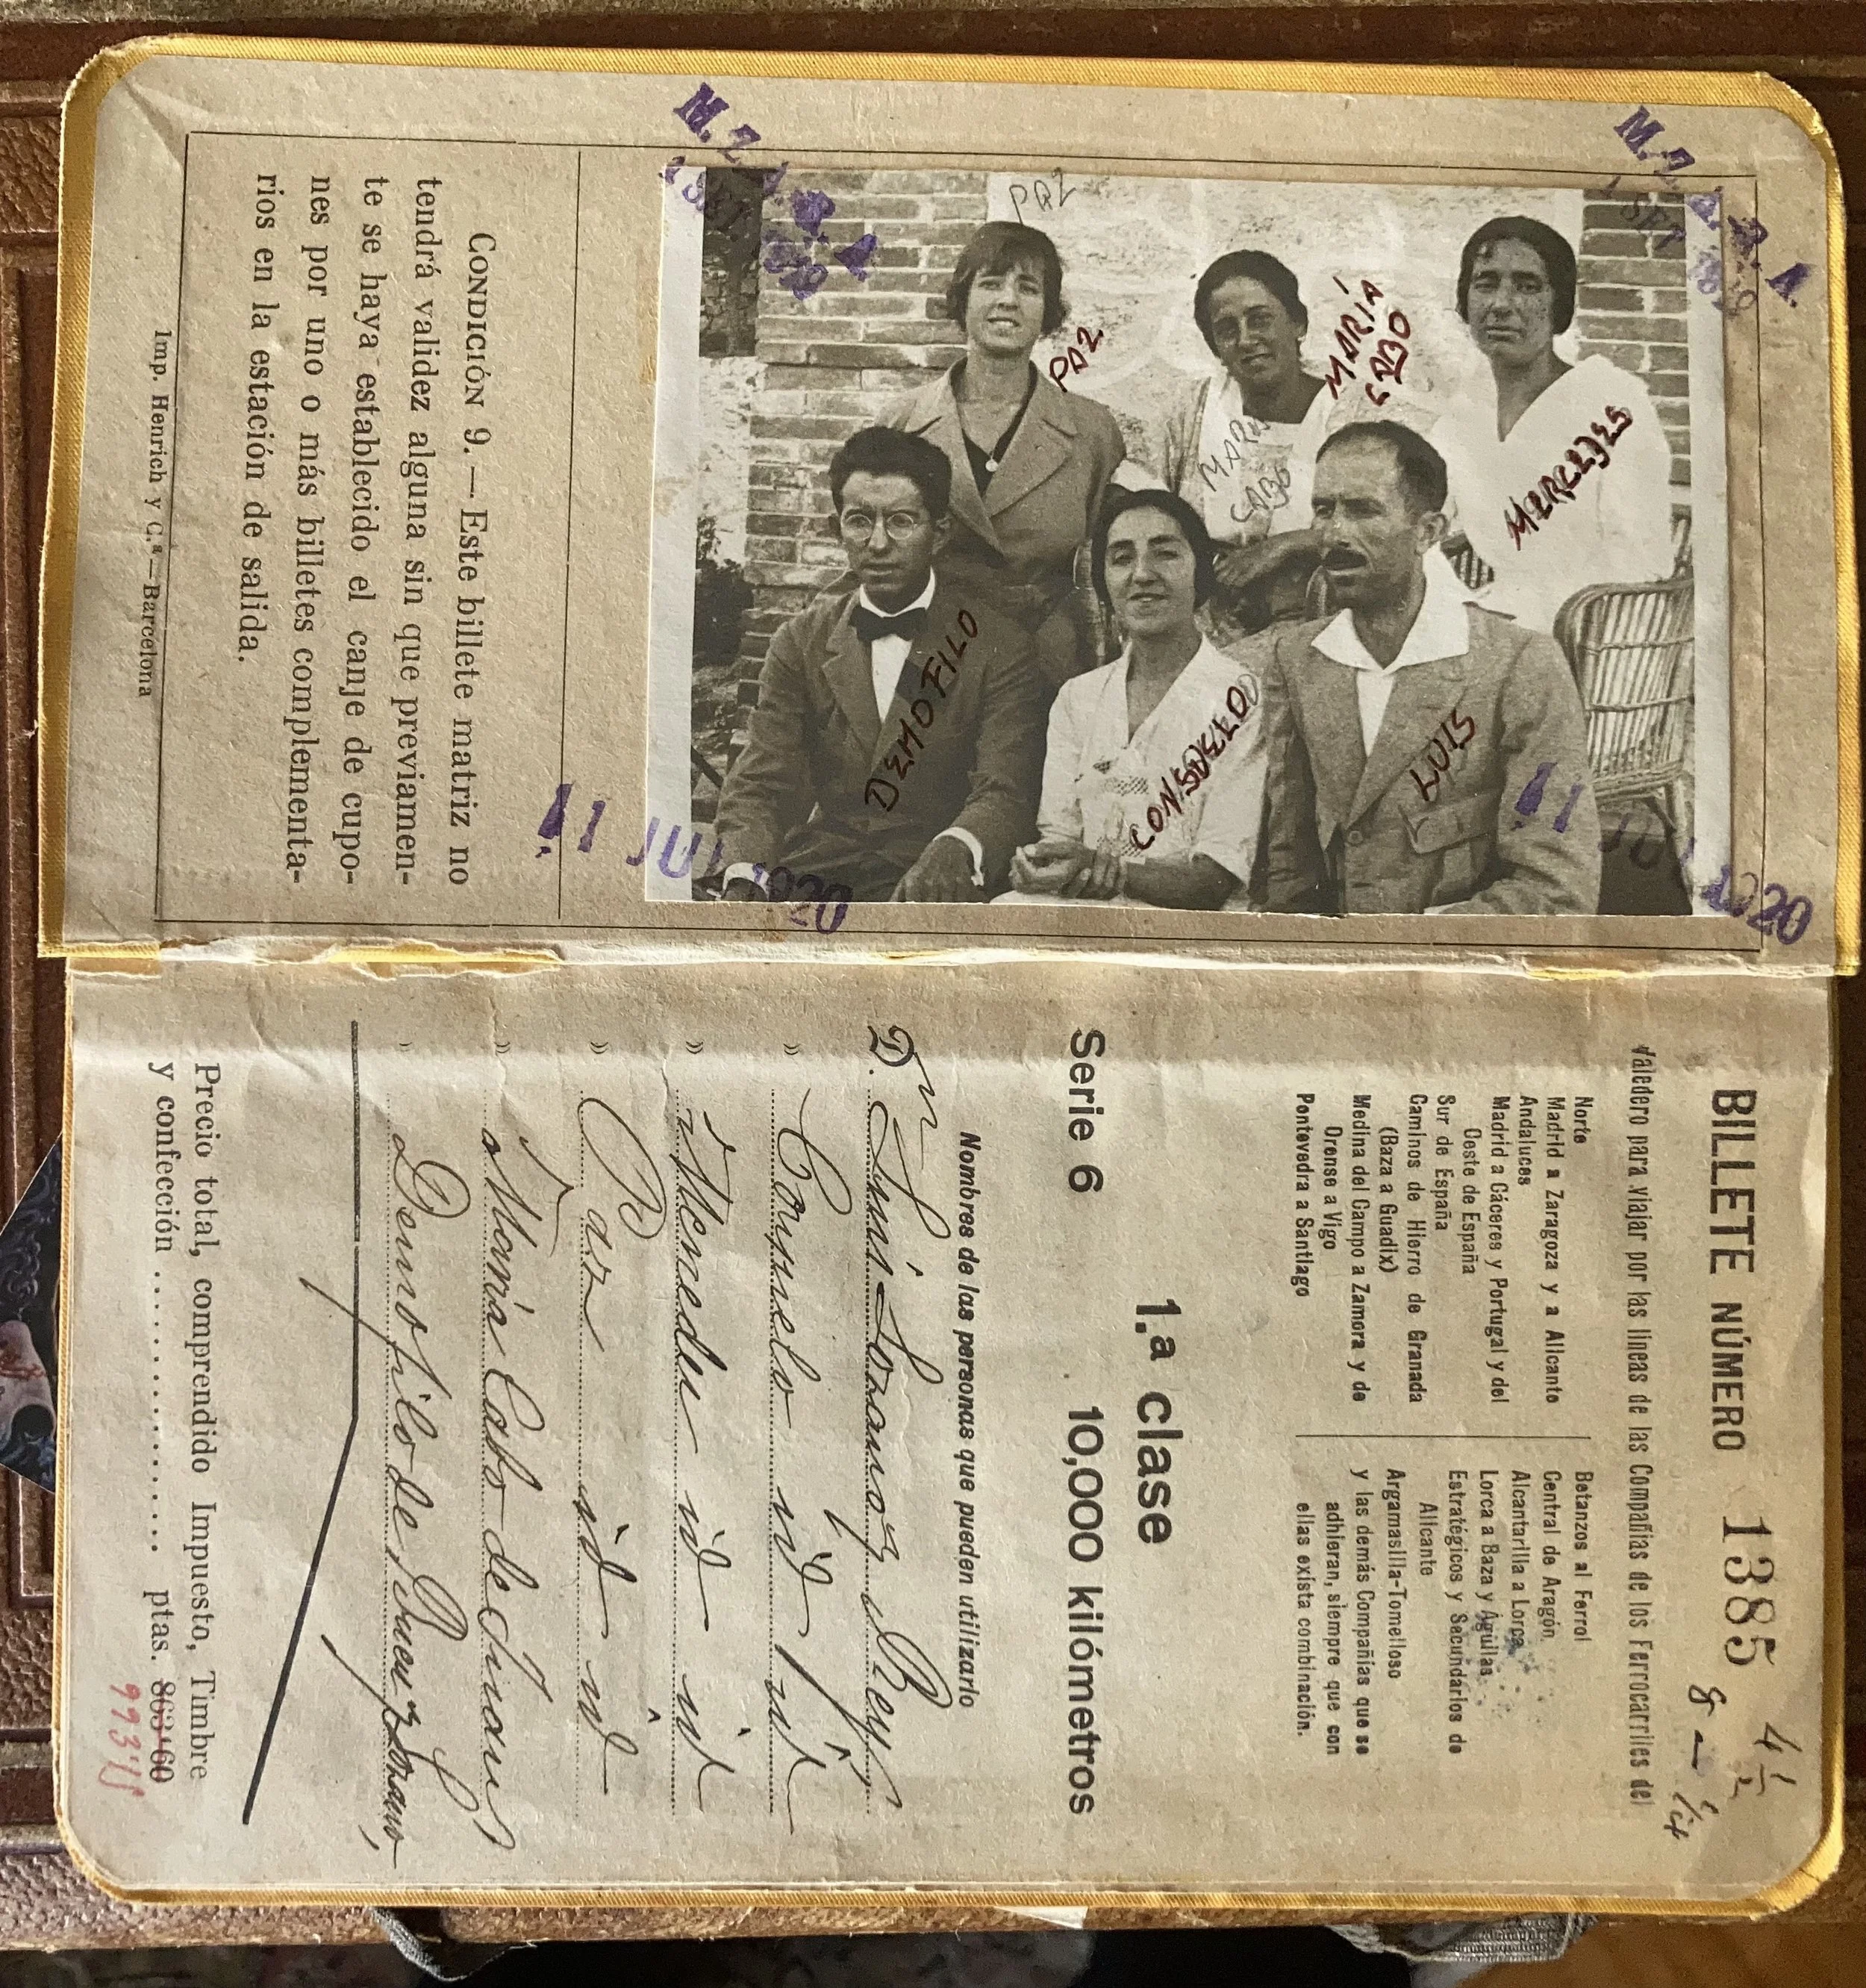 M. Z. A. R. A
1 SET 1920
M. Z. A. R. A.
1 SET 1920
PAZ
PAZ
MARÍA
CABO
MARIA
CABO
MERCEDES
DEMOFILO
CONSUELO
LUIS
11 JUL 1920
11 JUL 1920
CONDICIÓN 9.—Este billete matriz no
tendrá validez alguna sin que previamen-
te se haya establecido el canje de cupo-
nes por uno o más billetes complementa-
rios en la estación de salida.
Imp. Henrich y C.ª—Barcelona
4 1/2
BILLETE NÚMERO 1385
8 -
Valedero para viajar por las líneas de las Compañías de los Ferrocarriles del
Norte
Madrid a Zaragoza y a Alicante
Andaluces
Madrid a Cáceres y Portugal y del
Oeste de España
Sur de España
Caminos de Hierro de Granada
(Baza a Guadix)
Medina del Campo a Zamora y de
Orense a Vigo
Pontevedra a Santiago
Betanzos al Ferrol
Central de Aragón
Alcantarilla a Lorca
Lorca a Baza y Águilas
Estratégicos y Secundarios de
Alicante
Argamasilla-Tomelloso
y las demás Compañías que se
adhieran, siempre que con
ellas exista combinación.
1.ª clase
Serie 6 10,000 kilómetros
Nombres de las personas que pueden utilizarlo
D.n Luis Lozano y Rey
» Consuelo id id
» Mercedes id id
» Paz id id
» María Cabo de
» Demofilo de Buen y Lozano
Precio total, comprendido Impuesto, Timbre
y confección .............. ptas. 863'60
993'15